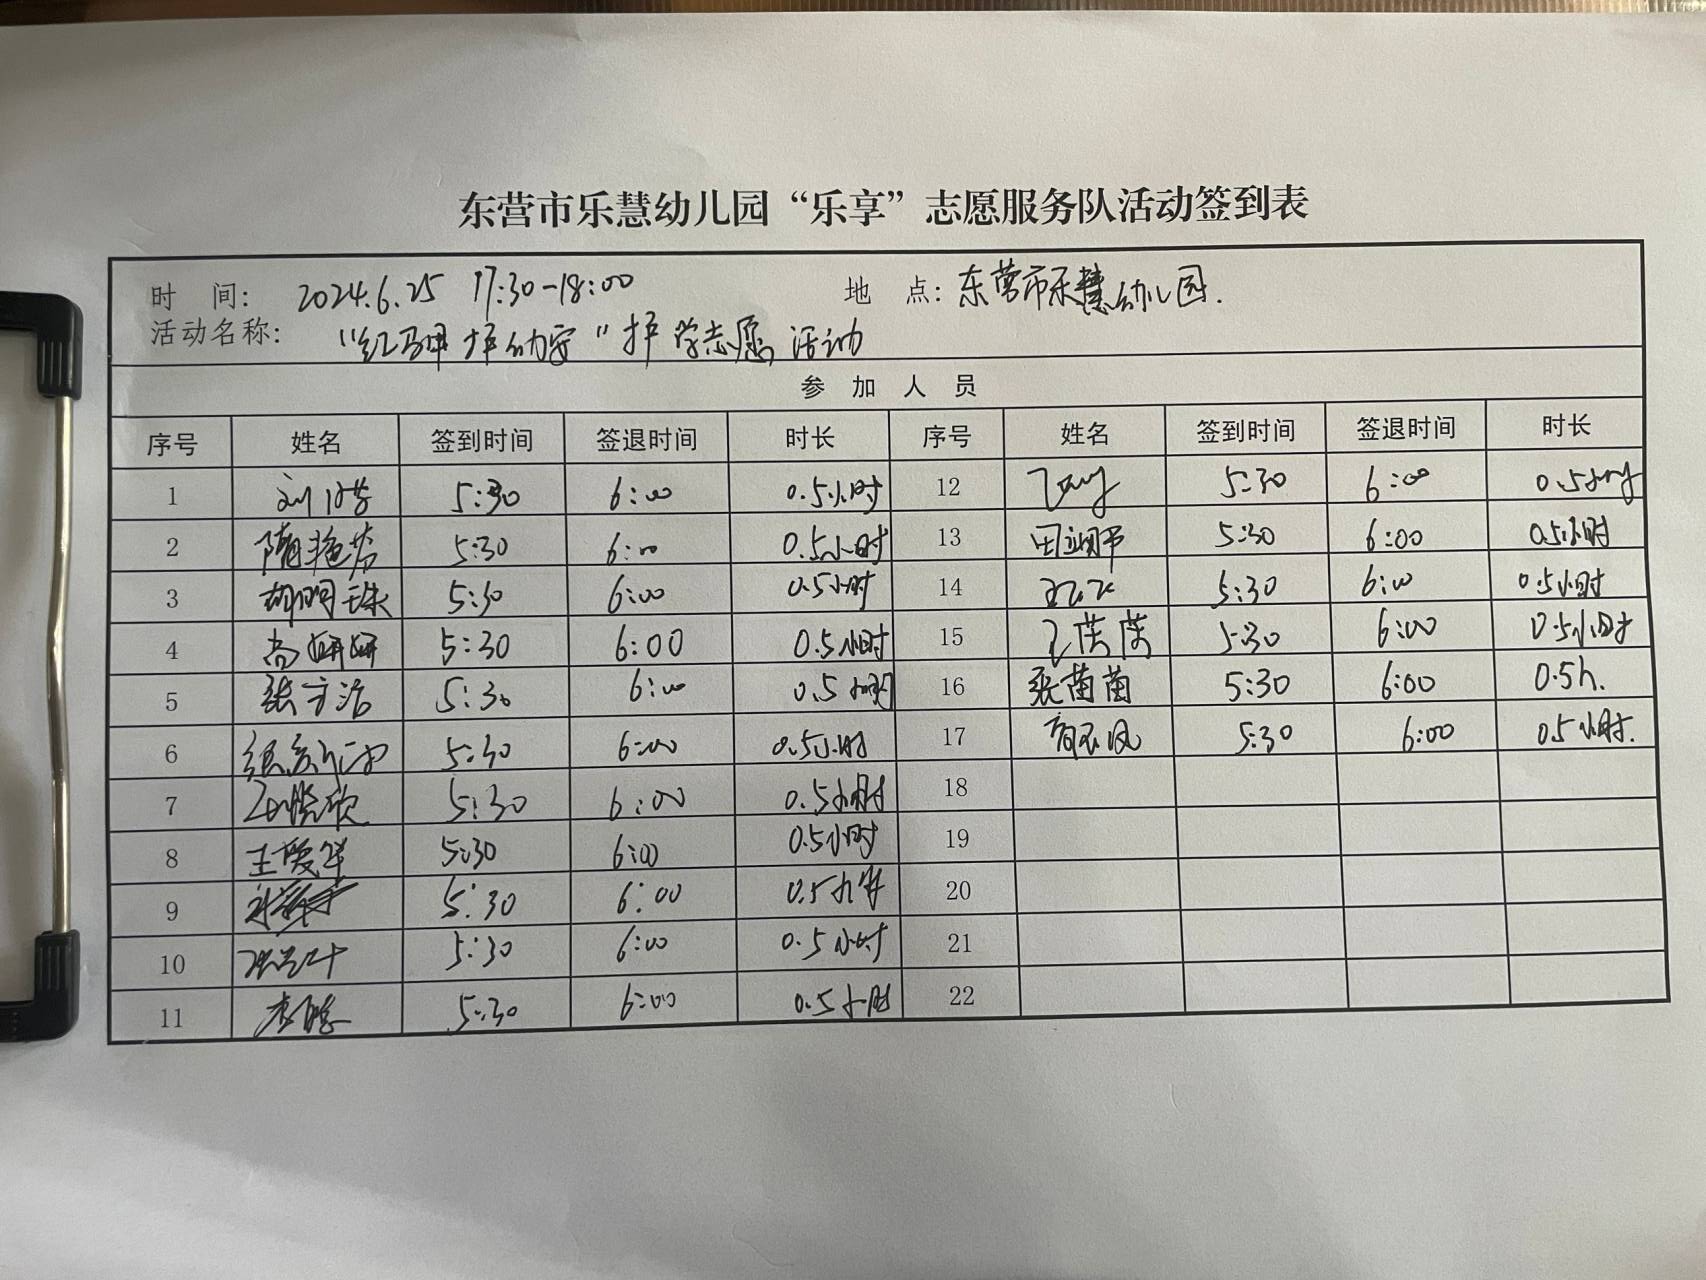 东营市乐慧幼儿园“乐享”志愿服务队活动签到表
时 间: 2024.6.25 17:30-18:00 地 点: 东营市乐慧幼儿园.
活动名称: “红马甲护幼安”护学志愿活动
参 加 人 员
序号 姓名 签到时间 签退时间 时长 序号 姓名 签到时间 签退时间 时长
1 5:30 6:00 0.5小时 12 5:30 6:00 0.5小时
2 隋艳芳 5:30 6:00 0.5小时 13 5:30 6:00 0.5小时
3 胡明珠 5:30 6:00 0.5小时 14 5:30 6:00 0.5小时
4 尚妍妍 5:30 6:00 0.5小时 15 5:30 6:00 0.5小时
5 张方洁 5:30 6:00 0.5小时 16 张苗苗 5:30 6:00 0.5h.
6 5:30 6:00 0.5小时 17 5:30 6:00 0.5小时.
7 5:30 6:00 0.5小时 18
8 王爱华 5:30 6:00 0.5小时 19
9 5:30 6:00 0.5小时 20
10 5:30 6:00 0.5小时 21
11 5:30 6:00 0.5小时 22